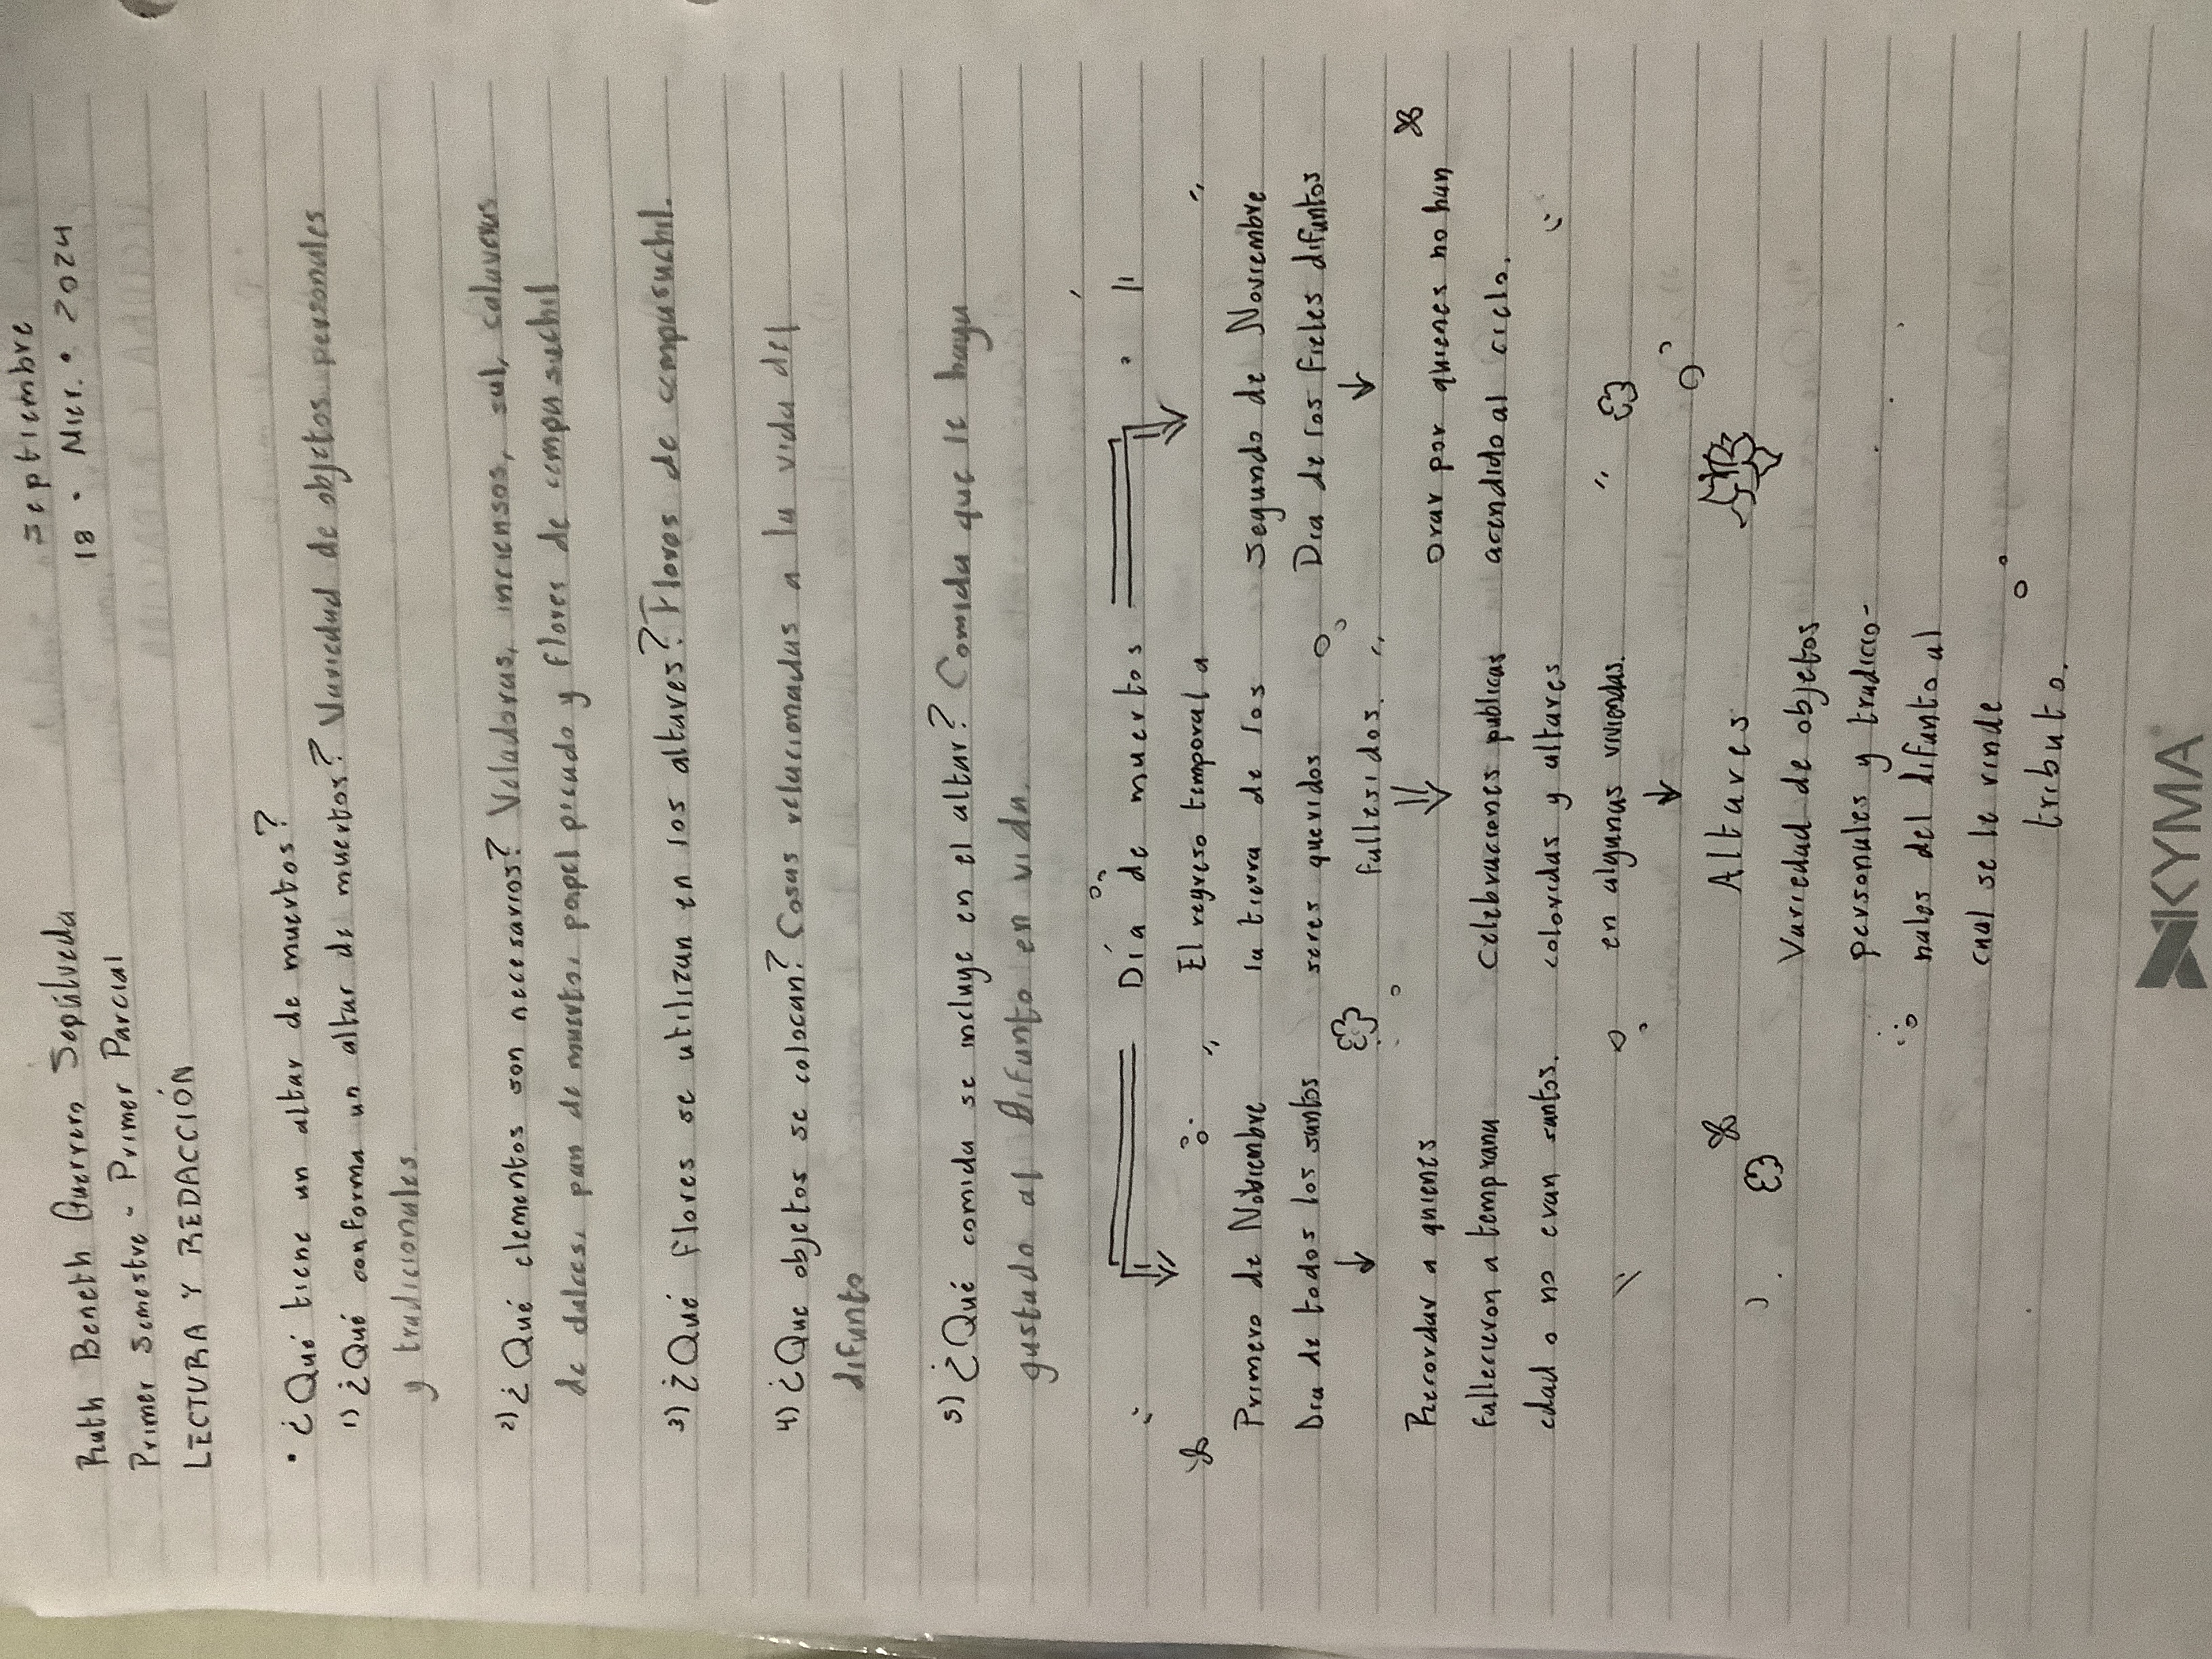 Septiembre
18 • Mier. • 2024
Ruth Beneth Guerrero Sepúlveda
Primer semestre - Primer Parcial
LECTURA Y REDACCIÓN
• ¿Qué tiene un altar de muertos?
1) ¿Qué conforma un altar de muertos? Variedad de objetos personales
y tradicionales
2) ¿Qué elementos son necesarios? Veladoras, inciensos, sal, calaveras
de dulces, pan de muerto, papel picado y flores de cempasuchil
3) ¿Qué flores se utilizan en los altares? Flores de cempasuchil.
4) ¿Que objetos se colocan? Cosas relacionadas a la vida del
difunto
5) ¿Qué comida se incluye en el altar? Comida que le haya
gustado al difunto en vida.
Día de muertos
El regreso temporal a
la tierra de los
seres queridos
fallesidos.
Primero de Nobiembre
Dia de todos los santos
Recordar a quienes
fallecieron a temprana
edad o no eran santos.
Segundo de Noviembre
Dia de los fieles difuntos
orar por quienes no han
acendido al cielo.
Celebraciones publicas
coloridas y altares
en algunas viviendas.
Altares
Variedad de objetos
personales y tradicio-
nales del difunto al
cual se le rinde
tributo.
KYMA